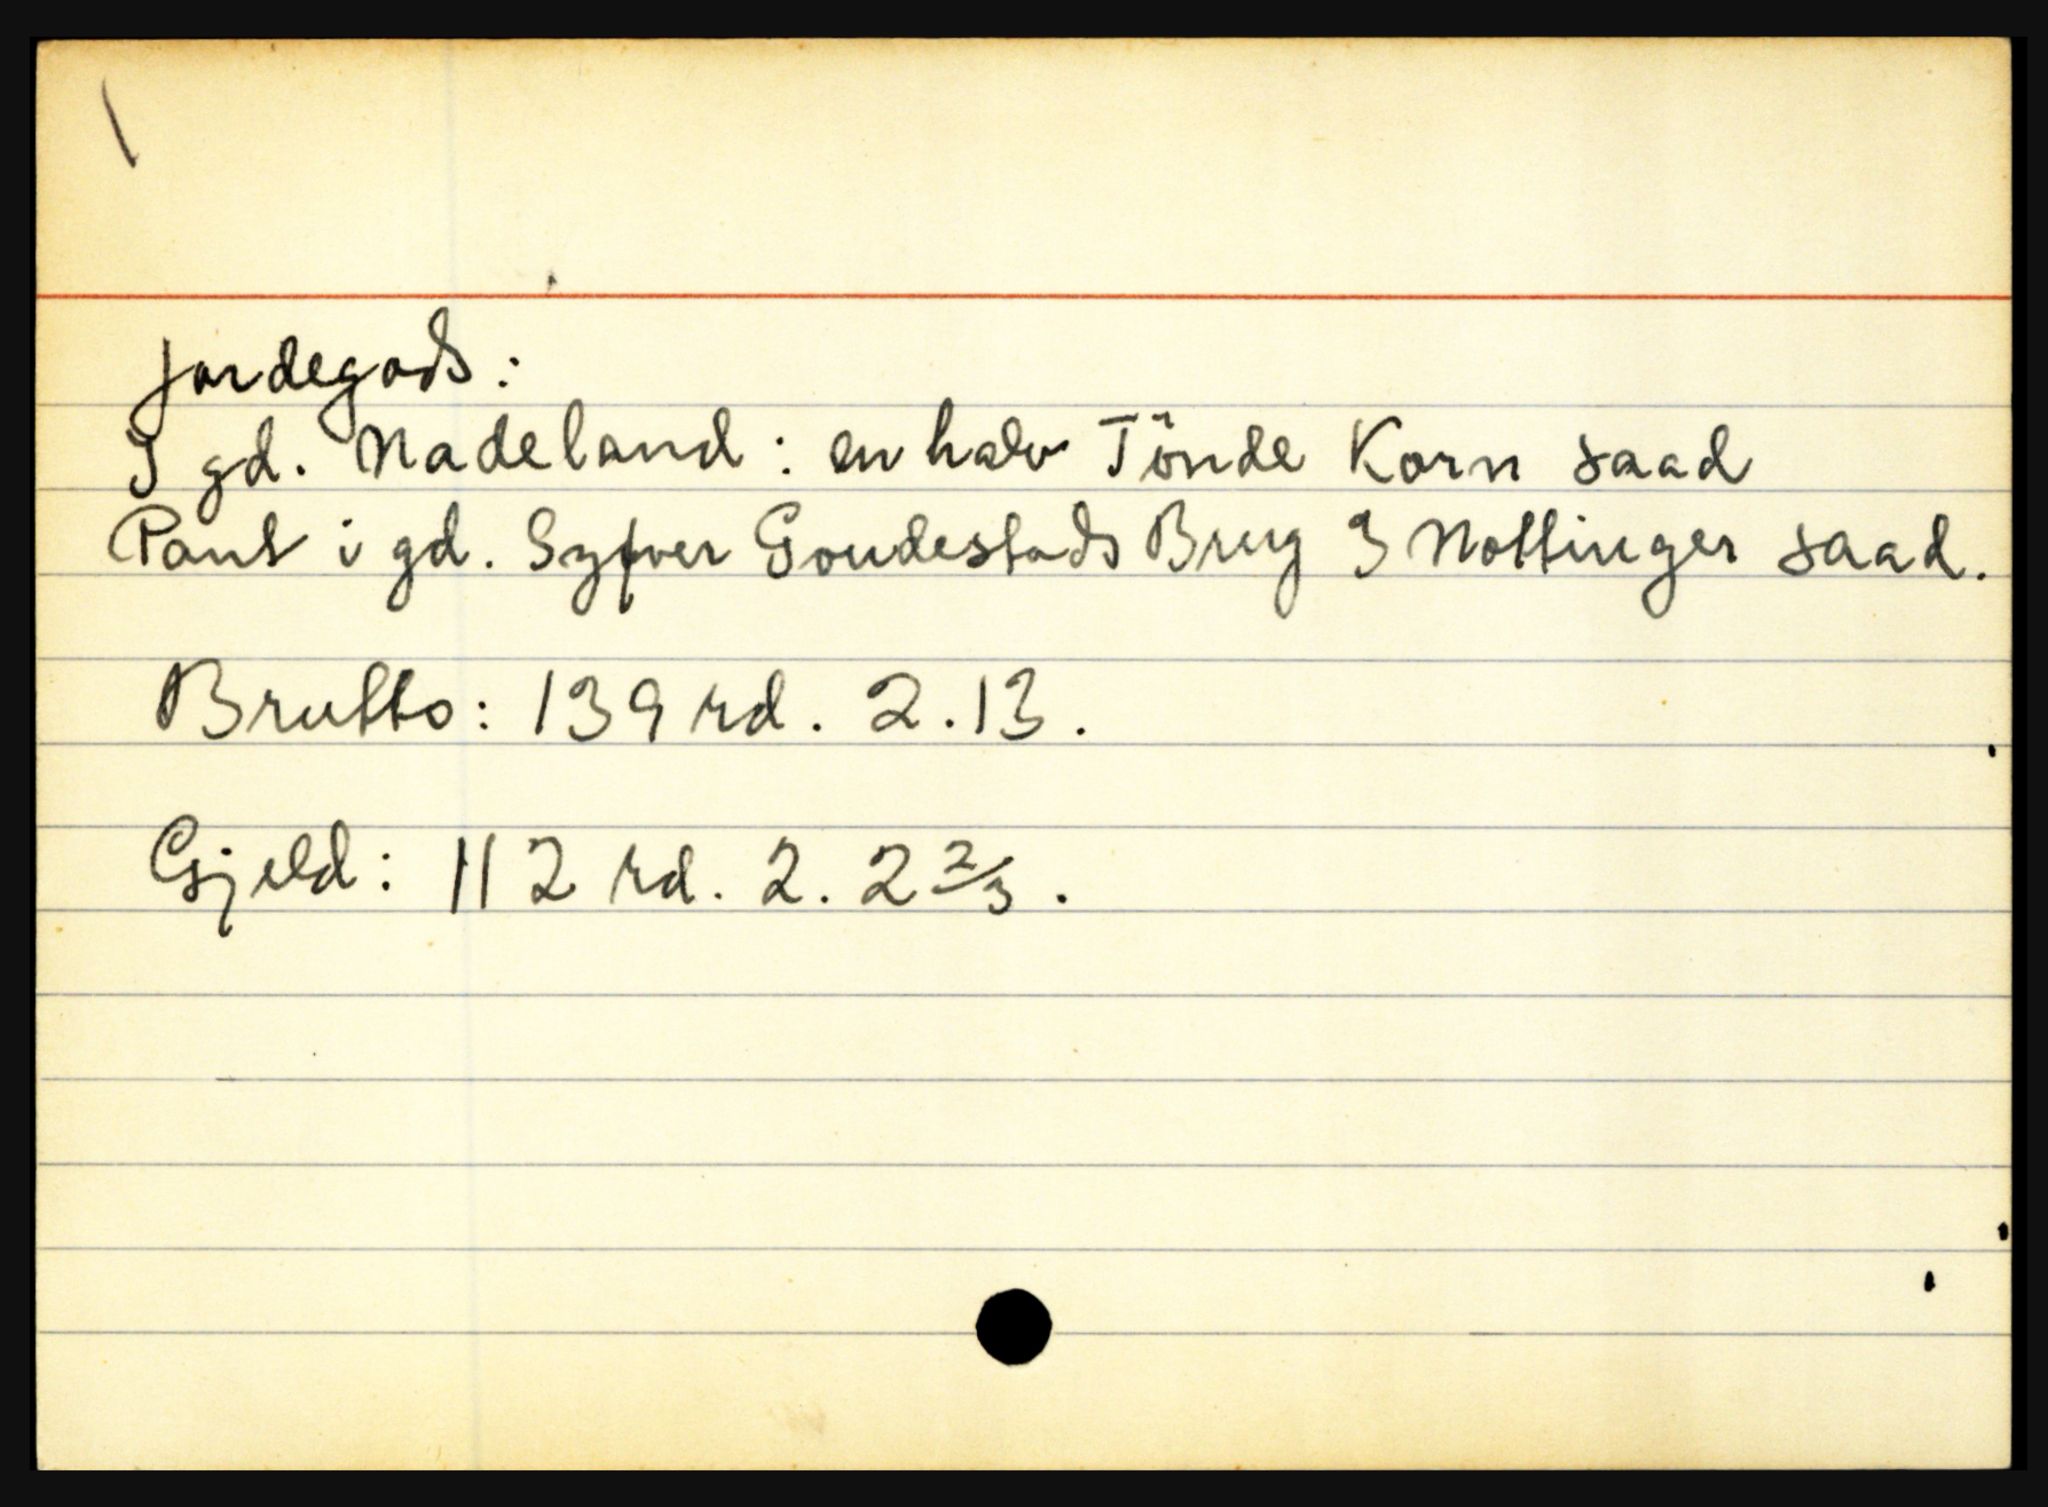 Jordegods:
I gd. Nadeland: en halv Tönde Korn saad
Pant i gd. Syfver Goudestads Brug 3 Nottinger saad.
Brutto: 139 rd. 2.13.
Gjeld: 112 rd. 2. 2 2/3.